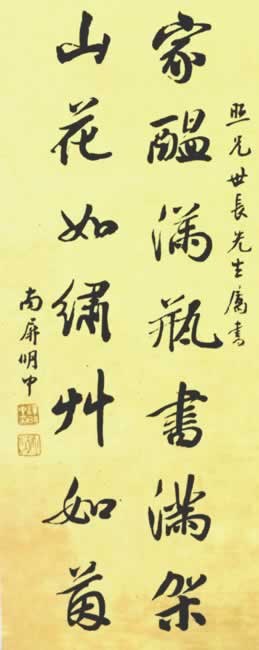 照兄世長先生屬書
家醞滿瓶書滿架
山花如繡艸如茵
南屏明中